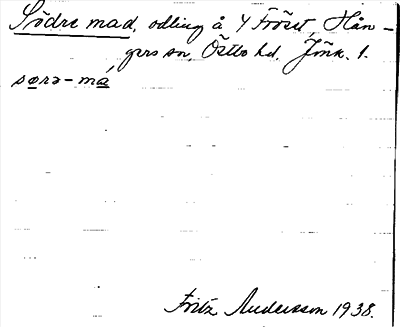 Södre mad, odling å Y Fröset, Hån-
gers sn, Östbo hd. Jönk. l.
sørə-má
Fritz Andersson 1938.